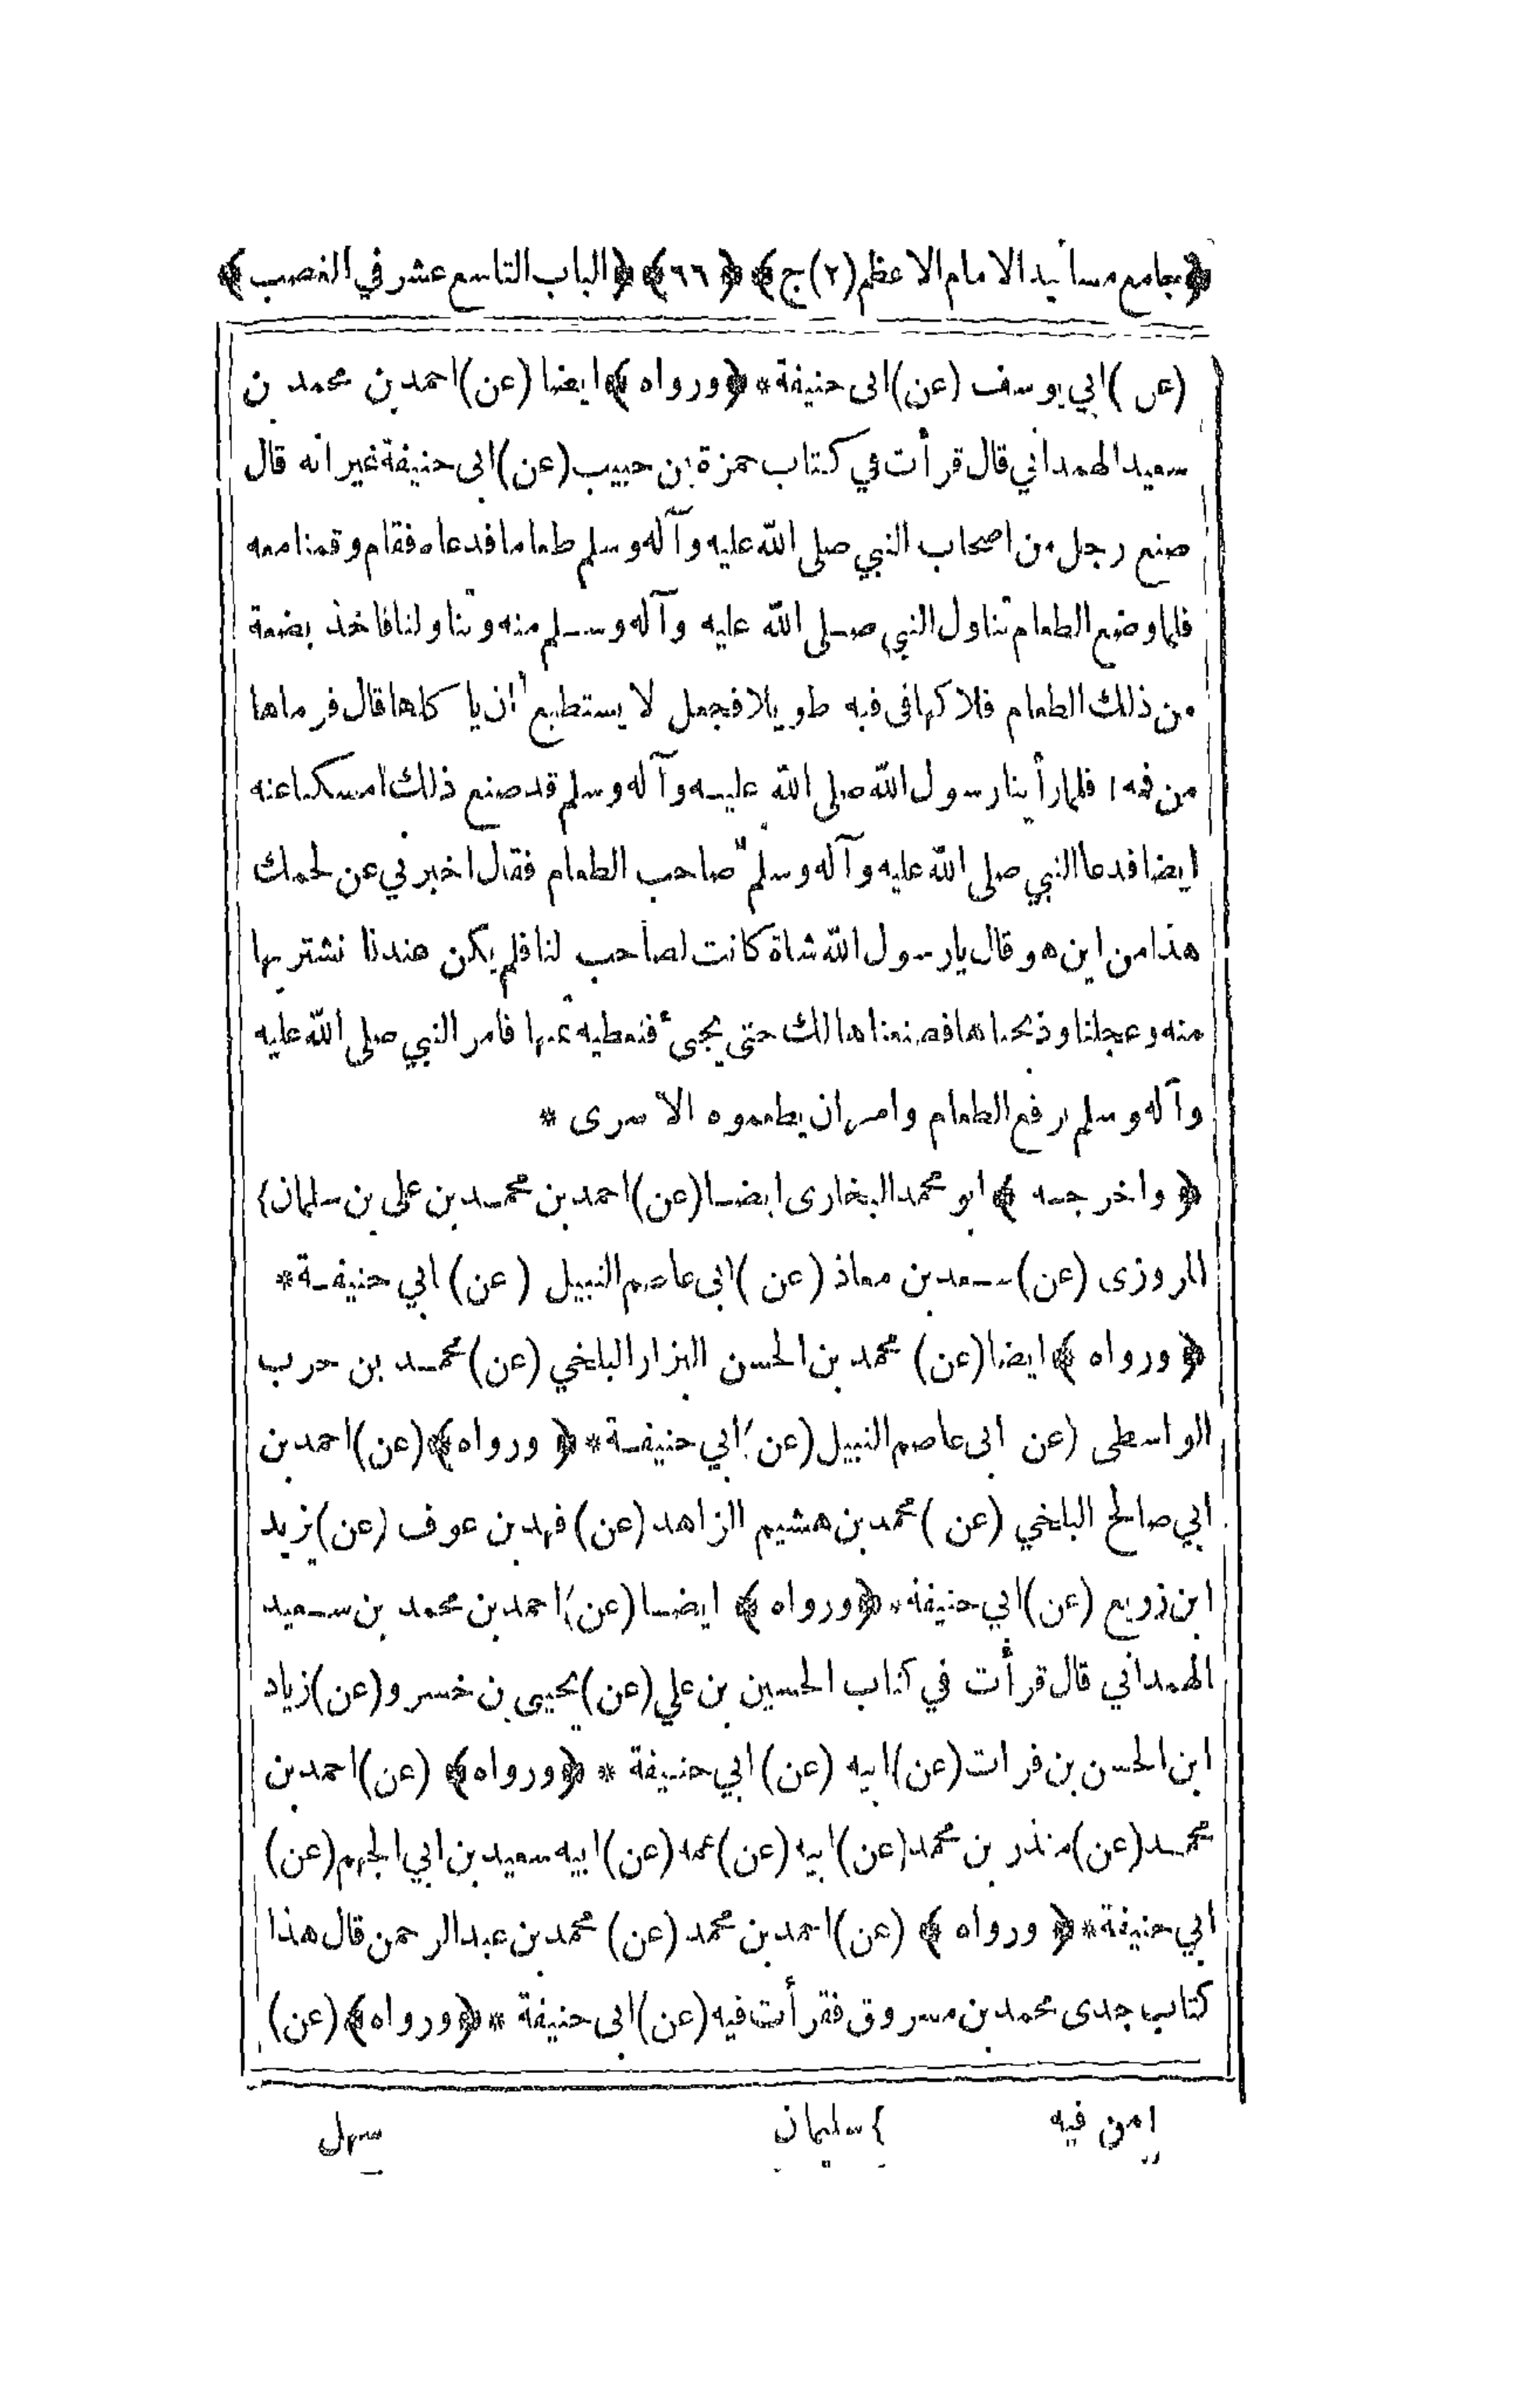 ﴿جامع مسانيد الامام الاعظم (٢) ج﴾ ﴿٦٦﴾ ﴿الباب التاسع عشر في الغصب﴾
(عن) ابي يوسف (عن) ابى حنيفة * ﴿ورواه﴾ ايضا (عن) احمد بن محمد بن
سعيد الهمداني قال قرأت في كتاب حمزة بن حبيب (عن) ابى حنيفة غير انه قال
صنع رجل من اصحاب النبي صلى الله عليه وآله وسلم طعاما فدعاه فقام وقمنا معه
فلما وضع الطعام تناول النبي صلى الله عليه وآله وسلم منه وتناولنا فاخذ بضعة
من ذلك الطعام فلاكها فى فيه طويلا فجعل لا يستطيع ان يا كلها قال فرماها
من فمه ا فلما رأينا رسول الله صلى الله عليه وآله وسلم قد صنع ذلك امسكنا عنه
ايضا فدعا النبي صلى الله عليه وآله وسلم صاحب الطعام فقال اخبرني عن لحمك
هذا من اين هو قال يا رسول الله شاة كانت لصاحب لنا فلم يكن عندنا نشتريها
منه وعجلنا وذبحناها فصنعناها لك حتى يجىء فنعطيه ثمنها فامر النبي صلى الله عليه
وآله وسلم برفع الطعام وامر ان يطعموه الاسرى *
﴿واخرجه﴾ ابو محمد البخارى ايضا (عن) احمد بن محمد بن على بن سلمان }
المروزى (عن) سعد بن معاذ (عن) ابى عاصم النبيل (عن) ابي حنيفة *
﴿ورواه﴾ ايضا (عن) محمد بن الحسن البزار البلخي (عن) محمد بن حرب
الواسطى (عن ابى عاصم النبيل (عن) ابي حنيفة * ﴿ورواه﴾ (عن) احمد بن
ابي صالح البلخي (عن) محمد بن هشيم الزاهد (عن) فهد بن عوف (عن) يزيد
ابن زريع (عن) ابي حنيفة * ﴿ورواه﴾ ايضا (عن) احمد بن محمد بن سعيد
الهمداني قال قرأت في كتاب الحسين بن علي (عن) يحيى بن خسرو (عن) زياد
ابن الحسن بن فرات (عن) ابيه (عن) ابي حنيفة * ﴿ورواه﴾ (عن) احمد بن
محمد (عن) منذر بن محمد (عن) ابيه (عن) عمه (عن) ابيه سعيد بن ابي الجهم (عن)
ابي حنيفة * ﴿ورواه﴾ (عن) احمد بن محمد (عن) محمد بن عبد الرحمن قال هذا
كتاب جدى محمد بن مسروق فقرأت فيه (عن) ابى حنيفة * ﴿ورواه﴾ (عن)
ا من فيه } سليمان سهل